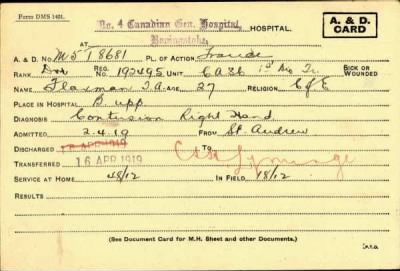 Form DMS 1401.
No. 4 Canadian Gen. Hospital, HOSPITAL.
A. & D. CARD
AT Basingstoke.
A. & D. No. M5T8681 PL. OF ACTION France
RANK REG. NO. 192495 UNIT SICK OR WOUNDED
NAME Flaxman T.A. AGE 27 RELIGION C of E
PLACE IN HOSPITAL B upp
DIAGNOSIS Contusion Right Hand
ADMITTED 2.4.19 FROM St. Andrew
DISCHARGED
TRANSFERRED 16 APR 1919
SERVICE AT HOME 48/12 IN FIELD 18/12
RESULTS
(See Document Card for M.H. Sheet and other Documents.)